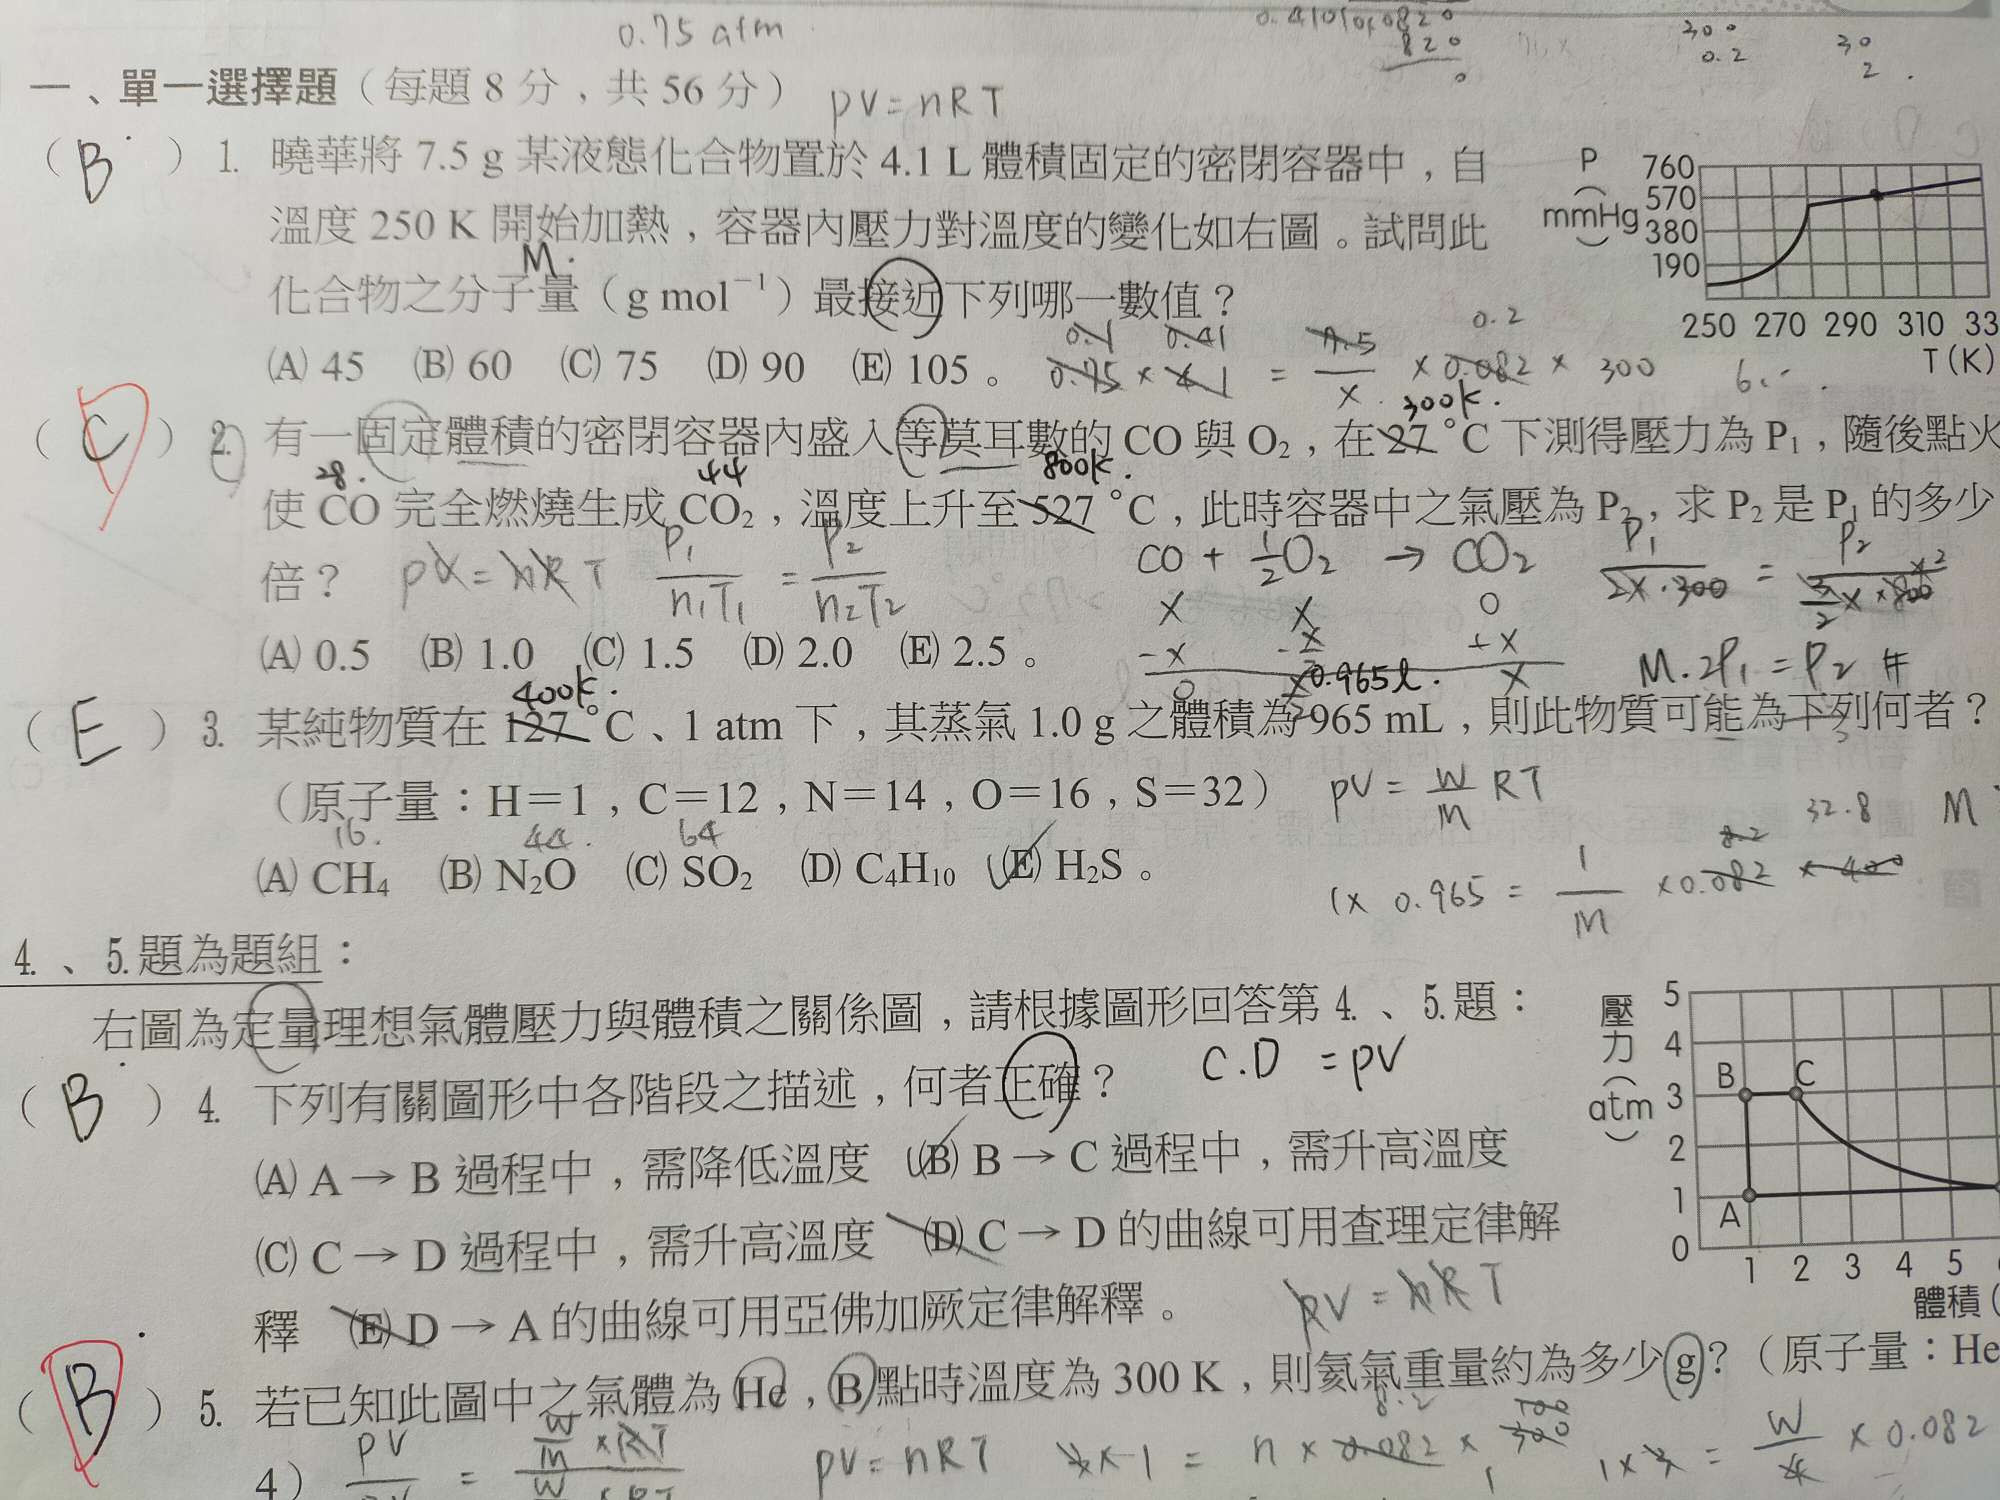 0.75 atm
一、單一選擇題（每題 8 分，共 56 分） PV=nRT
（ B ） 1. 曉華將 7.5 g 某液態化合物置於 4.1 L 體積固定的密閉容器中，自
溫度 250 K 開始加熱，容器內壓力對溫度的變化如右圖。試問此
M.
化合物之分子量（g mol⁻¹）最接近下列哪一數值？
(A) 45 (B) 60 (C) 75 (D) 90 (E) 105。
P (mmHg)
760
570
380
190
250 270 290 310 33
T(K)
0.1 0.41 7.5 0.2
0.75 × 4.1 = x × 0.082 × 300
300K.
（ C ） 2. 有一固定體積的密閉容器內盛入等莫耳數的 CO 與 O₂，在 27 °C 下測得壓力為 P₁，隨後點火
28. 44 800K.
使 CO 完全燃燒生成 CO₂，溫度上升至 527 °C，此時容器中之氣壓為 P₂，求 P₂ 是 P₁ 的多少
倍？ PV=nRT P₁/n₁T₁ = P₂/n₂T₂
CO + 1/2 O₂ → CO₂
x x 0
-x -x/2 +x
0 x/2 x
P₁/2x·300 = P₂/(3/2 x × 800) ×2
(A) 0.5 (B) 1.0 (C) 1.5 (D) 2.0 (E) 2.5。
M.2P₁ = P₂ #
400K. 0.965l.
（ E ） 3. 某純物質在 127 °C、1 atm 下，其蒸氣 1.0 g 之體積為 965 mL，則此物質可能為下列何者？
（原子量：H＝1，C＝12，N＝14，O＝16，S＝32） PV = W/M RT
16. 44. 64
(A) CH₄ (B) N₂O (C) SO₂ (D) C₄H₁₀ (E) H₂S。
8.2 32.8 M
1× 0.965 = 1/M ×0.082 × 400
4.、5.題為題組：
右圖為定量理想氣體壓力與體積之關係圖，請根據圖形回答第 4.、5.題：
C.D =PV
（ B ） 4. 下列有關圖形中各階段之描述，何者正確？
(A) A → B 過程中，需降低溫度 (B) B → C 過程中，需升高溫度
(C) C → D 過程中，需升高溫度 (D) C → D 的曲線可用查理定律解
釋 (E) D → A 的曲線可用亞佛加厥定律解釋。
PV = nRT
壓力(atm)
5
4
3
2
1
0
B C
A
1 2 3 4 5
體積(
（ B ） 5. 若已知此圖中之氣體為 He，B 點時溫度為 300 K，則氦氣重量約為多少 g？（原子量：He
8.2 100
PV=nRT 3×1 = n × 0.082 × 300
1×3 = W/4 × 0.082